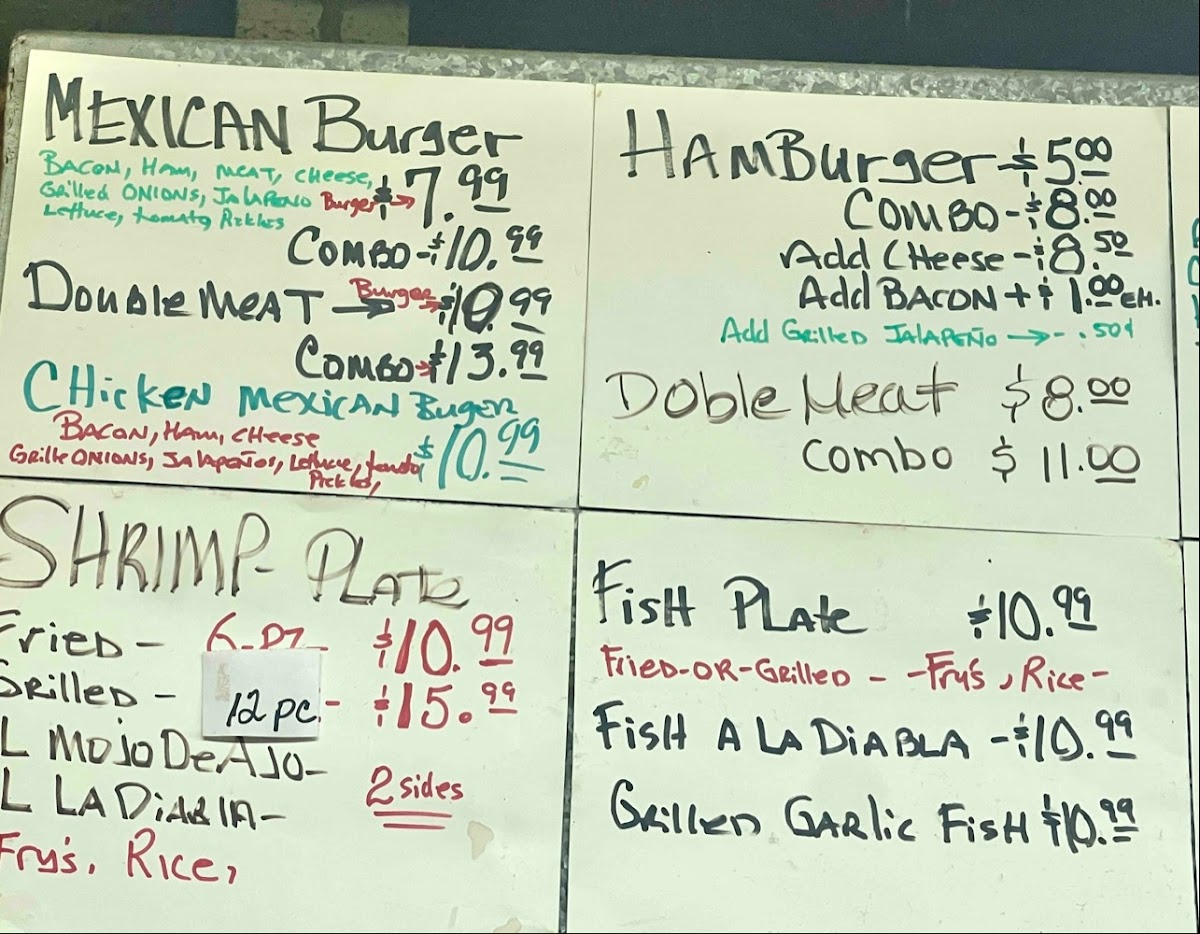 MEXICAN Burger
BACON, HAM, MEAT, CHEESE,
Grilled ONIONS, JALAPENO Burger → $7.99
Lettuce, tomato Pickles
COMBO-$10.99
DOUBLE MEAT → Burger → $10.99
COMBO→$13.99
CHICKEN MEXICAN Burger
BACON, HAM, CHEESE
Grille ONIONS, JALAPEÑOS, Lettuce, tomato $10.99
Pickles,
HAMBurger-$5.00
COMBO-$8.00
Add CHEESE-$8.50
Add BACON + $1.00 EH.
Add Grilled JALAPEÑO →- .50¢
Doble Meat $8.00
Combo $11.00
SHRIMP- PLAte
FRIED - 6-PZ- $10.99
Grilled - 12 PC.- $15.99
L MOJO DE AJO-
2 sides
L LA DIABLA-
Fry's, Rice,
FisH PLAte $10.99
Fried-OR-Grilled - -Fry's, Rice-
FisH A LA DiABLA -$10.99
Grilled GARlic FisH $10.99